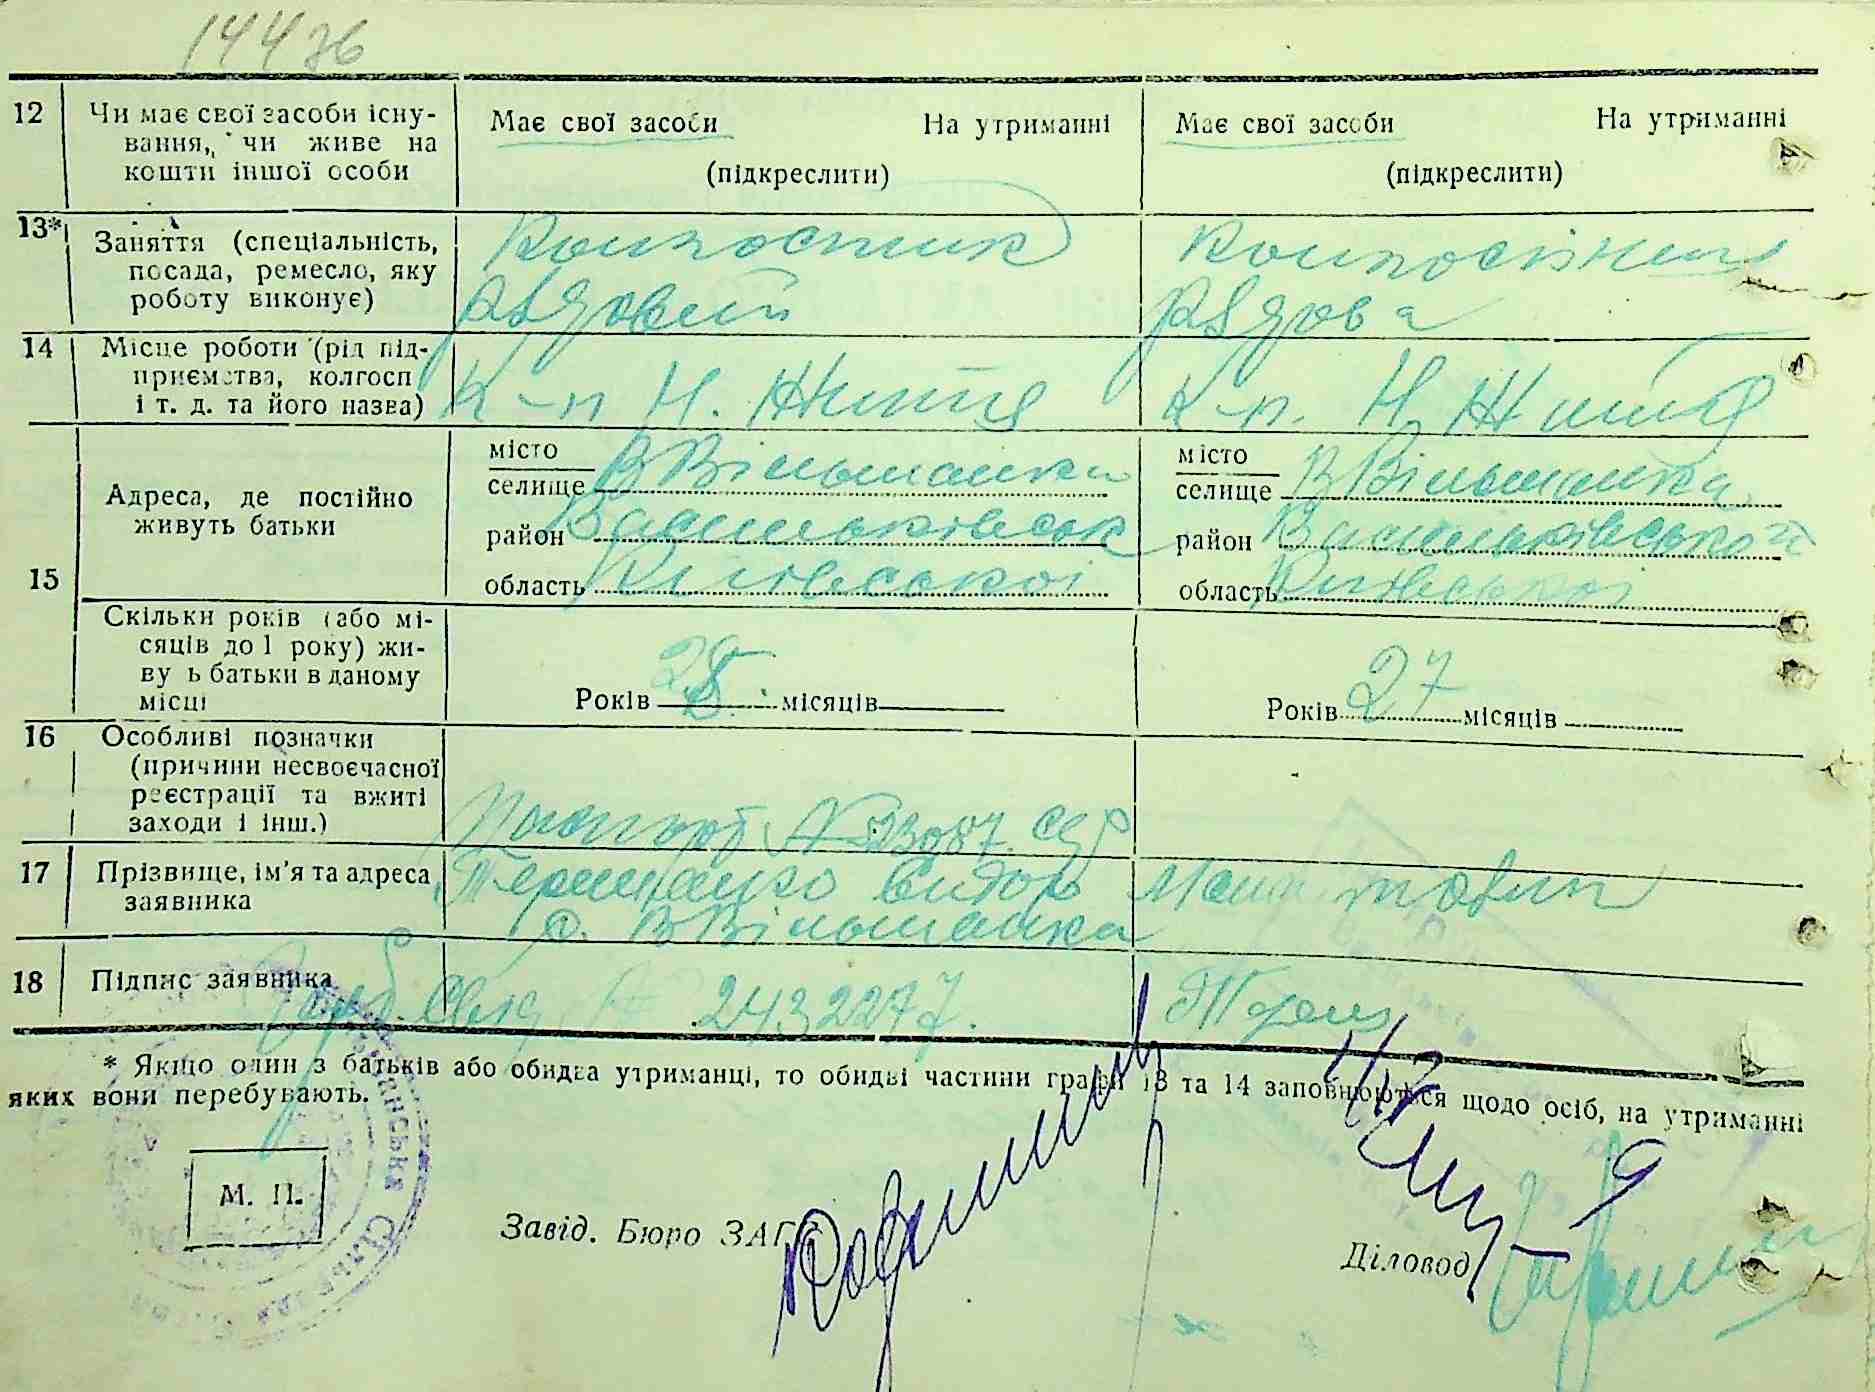 144 зв
12 Чи має свої засоби існу-
вання, чи живе на
кошти іншої особи
Має свої засоби На утриманні
(підкреслити)
Має свої засоби На утриманні
(підкреслити)
13* Заняття (спеціальність,
посада, ремесло, яку
роботу виконує)
Колгоспник
рядовий
Колгоспниця
рядова
14 Місце роботи (рід під-
приємства, колгосп
і т. д. та його назва)
К-п Н. Життя
К-п. Н Життя
15 Адреса, де постійно
живуть батьки
місто
селище В Вільшанка
район Васильківськ
область Київської
місто
селище В Вільшанка
район Васильківської
область Київської
Скільки років (або мі-
сяців до 1 року) жи-
ву ь батьки в даному
місці
Років 28 місяців
Років 27 місяців
16 Особливі позначки
(причини несвоєчасної
реєстрації та вжиті
заходи і інш.)
Паспорт №
17 Прізвище, ім'я та адреса
заявника
с. В Вільшанка
18 Підпис заявника
2432277.
* Якщо один з батьків або обидва утриманці, то обидві частини графи 13 та 14 заповнюються щодо осіб, на утриманні
яких вони перебувають.
М. П.
Завід. Бюро ЗАГС
Діловод